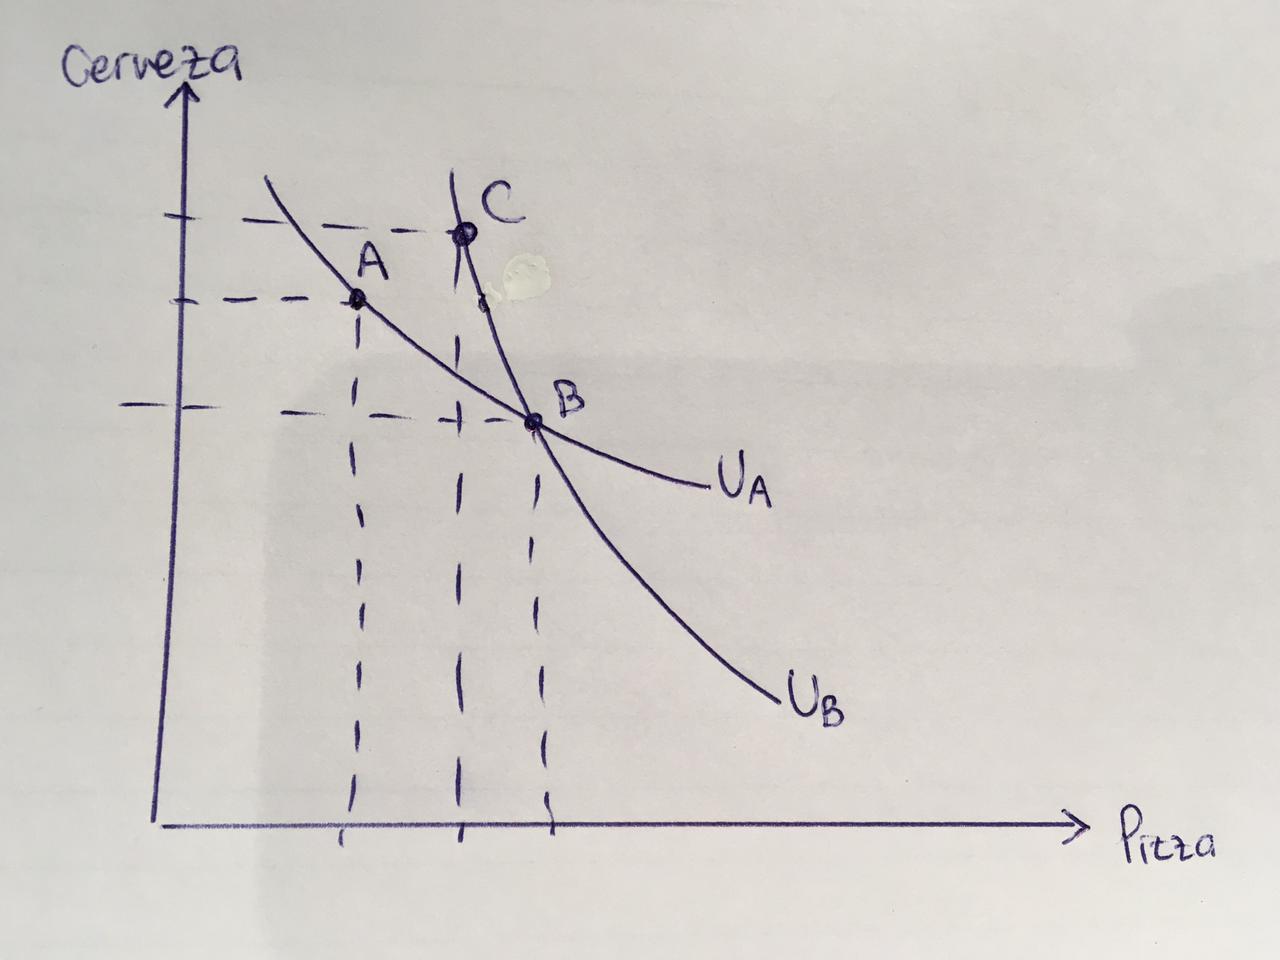 Cerveza
C
A
B
UA
UB
Pizza